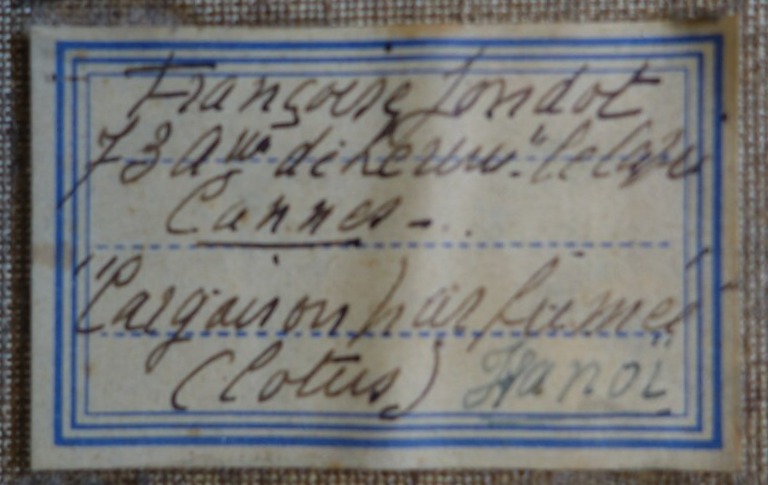 Françoise Jondot
73 Aue de Lérins "Le Cap"
Cannes -.
"Cargaison parfumée"
(Lotus) Hanoï